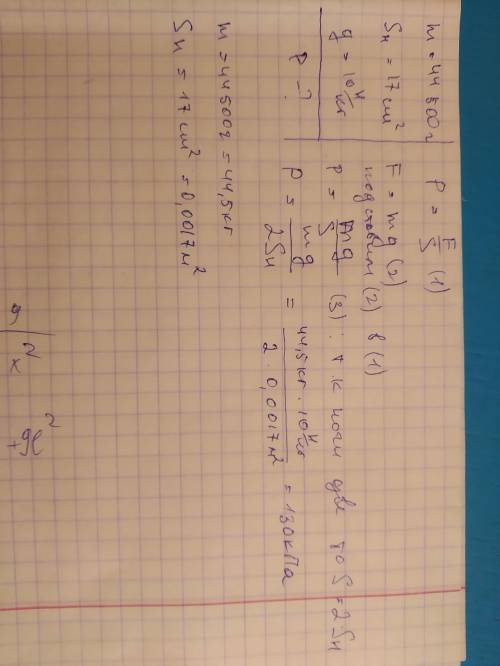 m = 44 500 г
Sн = 17 см²
g = 10 Н/кг
P - ?
P = F/S (1)
F = mg (2)
подставим (2) в (1)
P = mg/S (3) : т.к ноги две то S = 2Sн
P = mg/2Sн = 44,5кг · 10 Н/кг / 2 · 0,0017м² = 130кПа
m = 44500г = 44,5кг
Sн = 17 см² = 0,0017м²